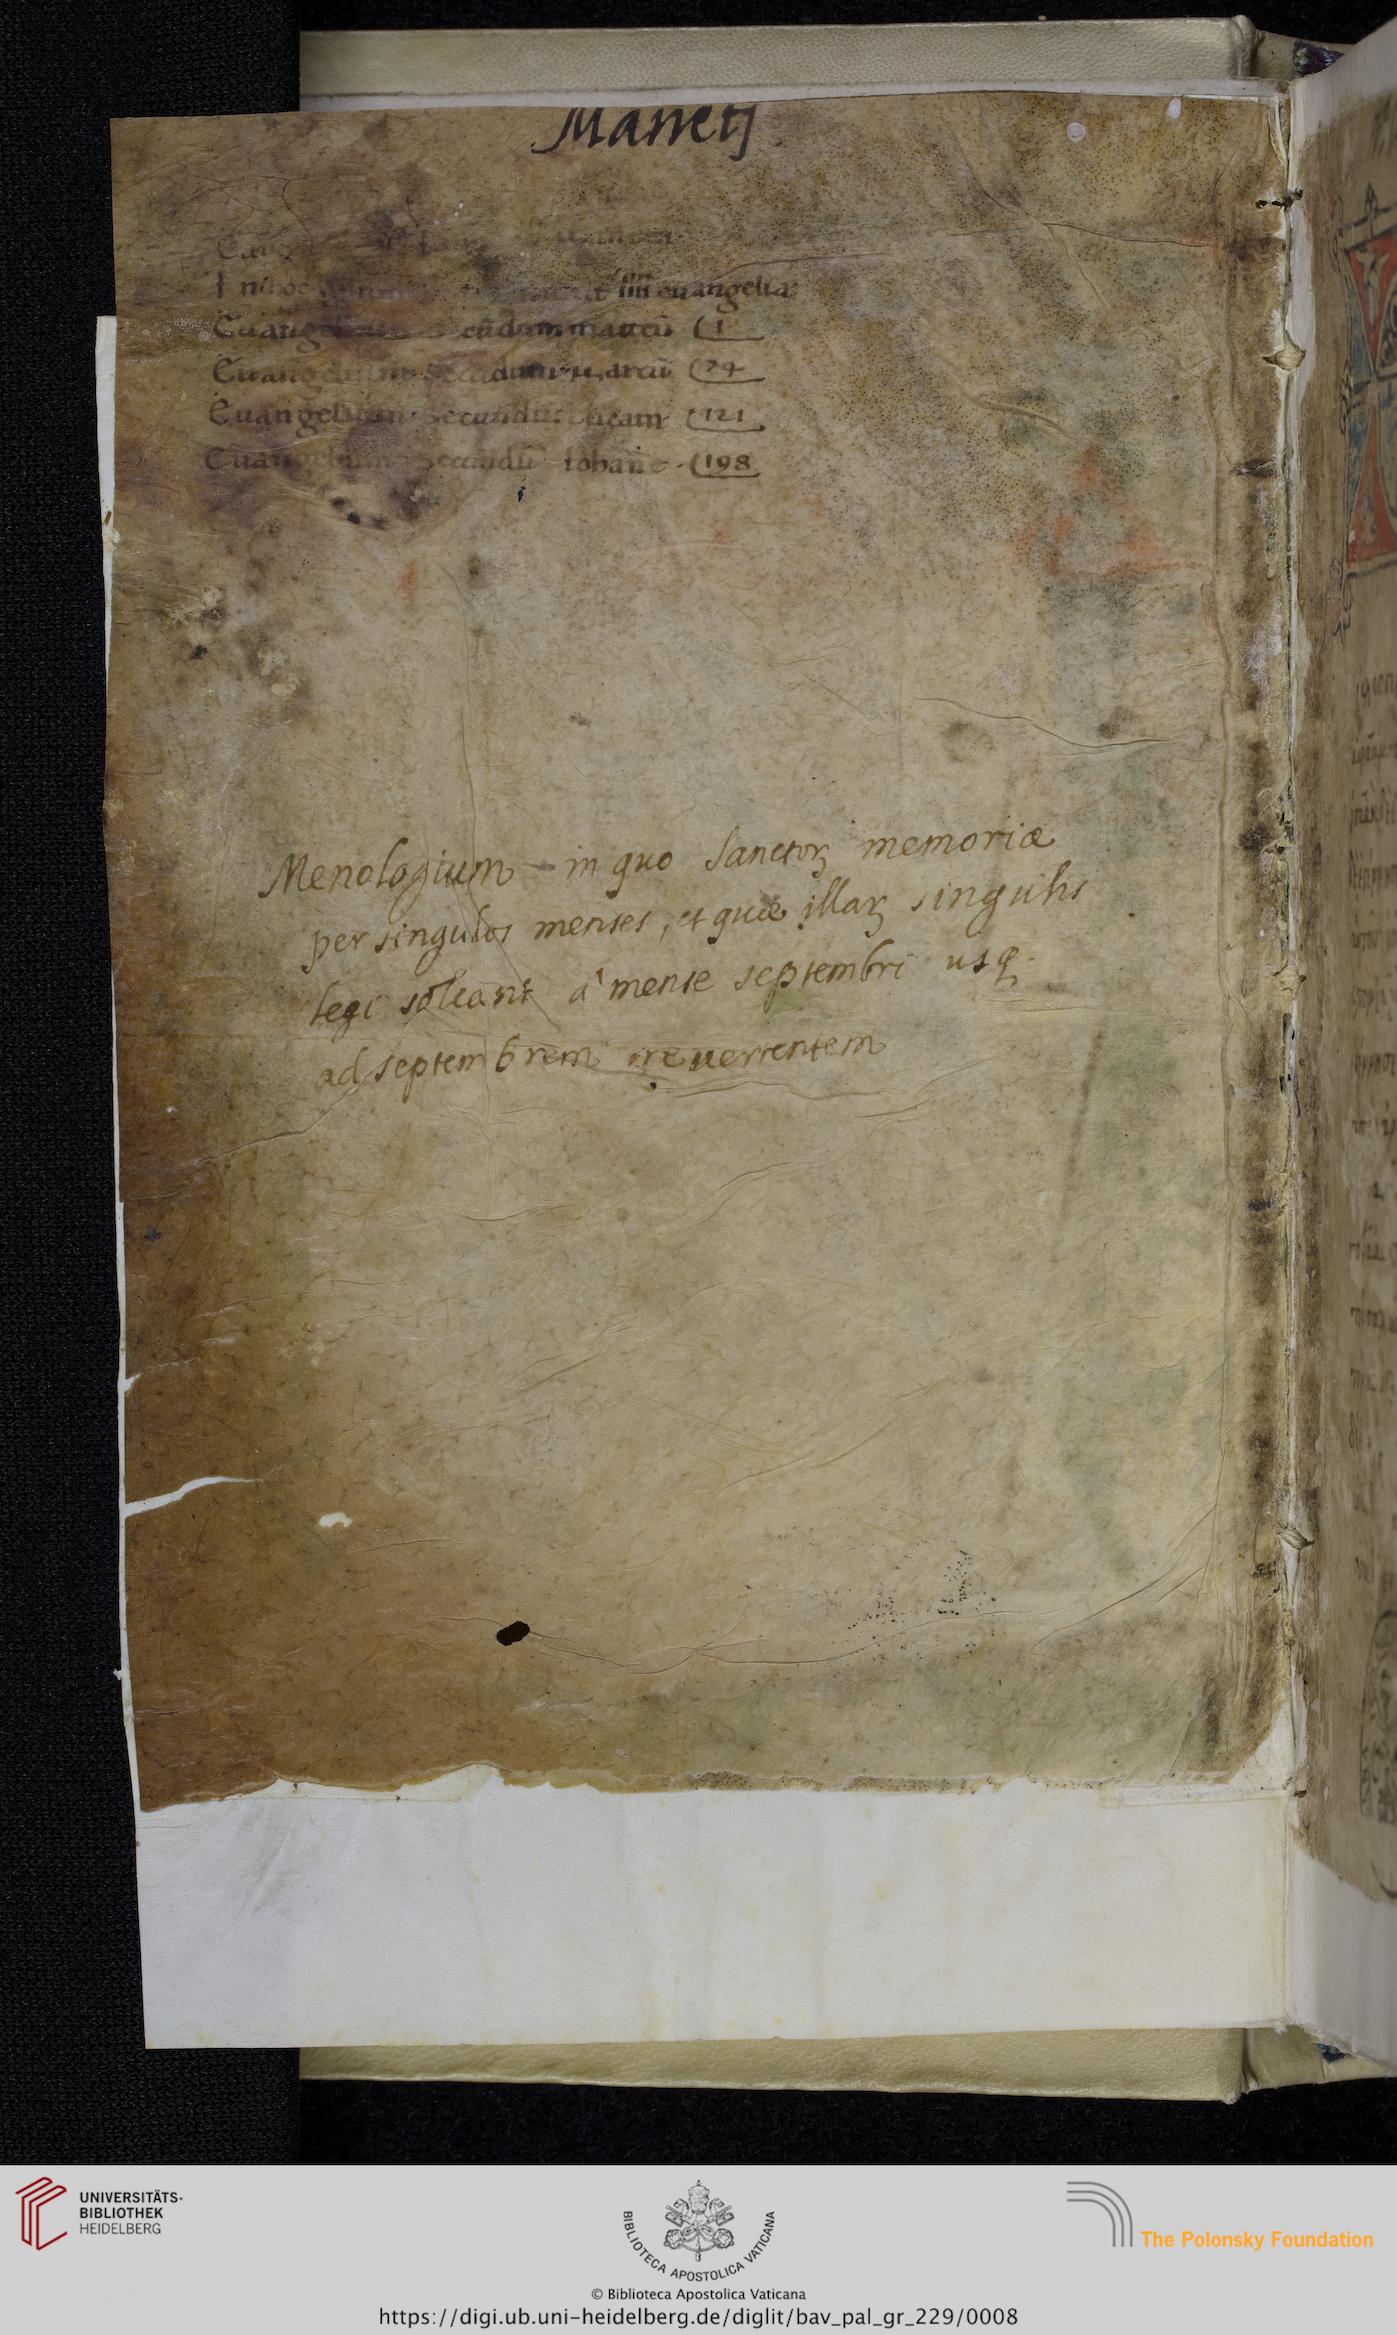 Manetj
IIII euangelia
Euangelium secundum matteū 1
Euangelium Secundum marcū 74
Euangelium secundu lucam 121
Euangelium secundū Iohane 198
Menologium in quo Sanctoꝝ memoriæ
per singulos menses, et quæ illaꝝ singulis
legi soleant à mense septembri usq
ad septembrem reuertentem
UNIVERSITÄTS-
BIBLIOTHEK
HEIDELBERG
BIBLIOTECA APOSTOLICA VATICANA
The Polonsky Foundation
© Biblioteca Apostolica Vaticana
https://digi.ub.uni-heidelberg.de/diglit/bav_pal_gr_229/0008